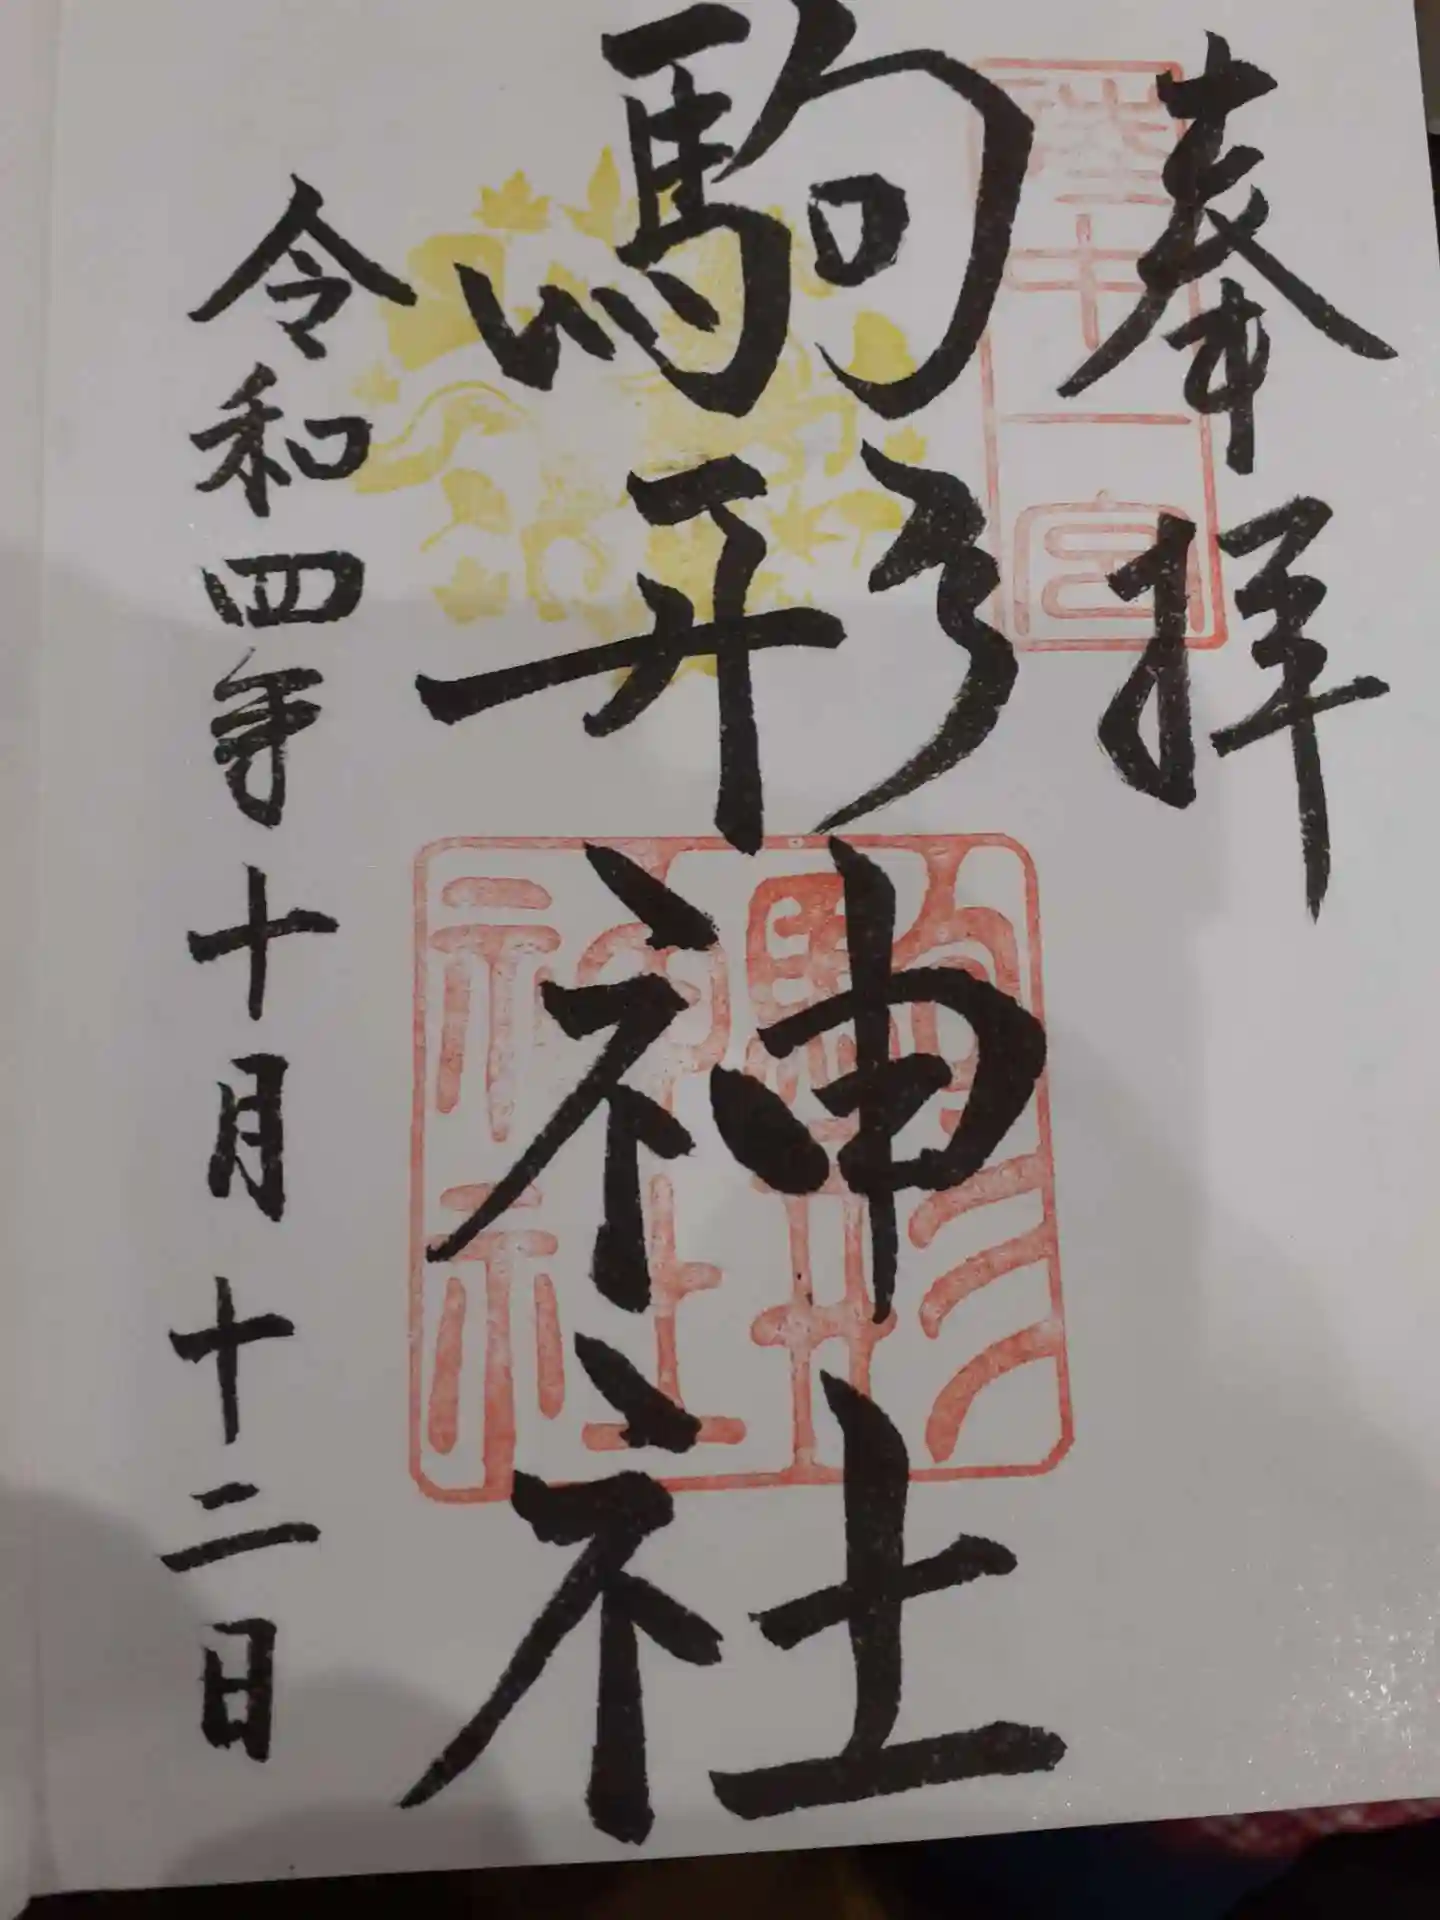 奉拝
陸中一宮
駒形神社
駒形
神社
令和四年十月十二日